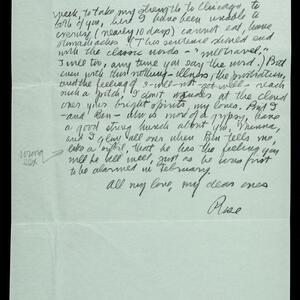 week, to take my strength to Chicago, to
both of you, here I have been unable to
exercise (nearly 10 days) cannot eat, have
stomachaches. (This sentence should end
with the classic words - "will travel."
I will too, any time you say the word.) But
even with this nothing-illness, the prostration,
and the feeling of I-will-not-get-well - reach
such a pitch, I don't wonder at the cloud
over your bright spirits, my loves. But I
- and Ben - who is more of a gypsy, have
a good strong hunch about you, Vienna,
and I glow all over when Ben tells me,
like a sybil, that he has the feeling you
will be all well, just as he was first
to be alarmed in February
All my love, my dear ones
Rose
wrong
sex